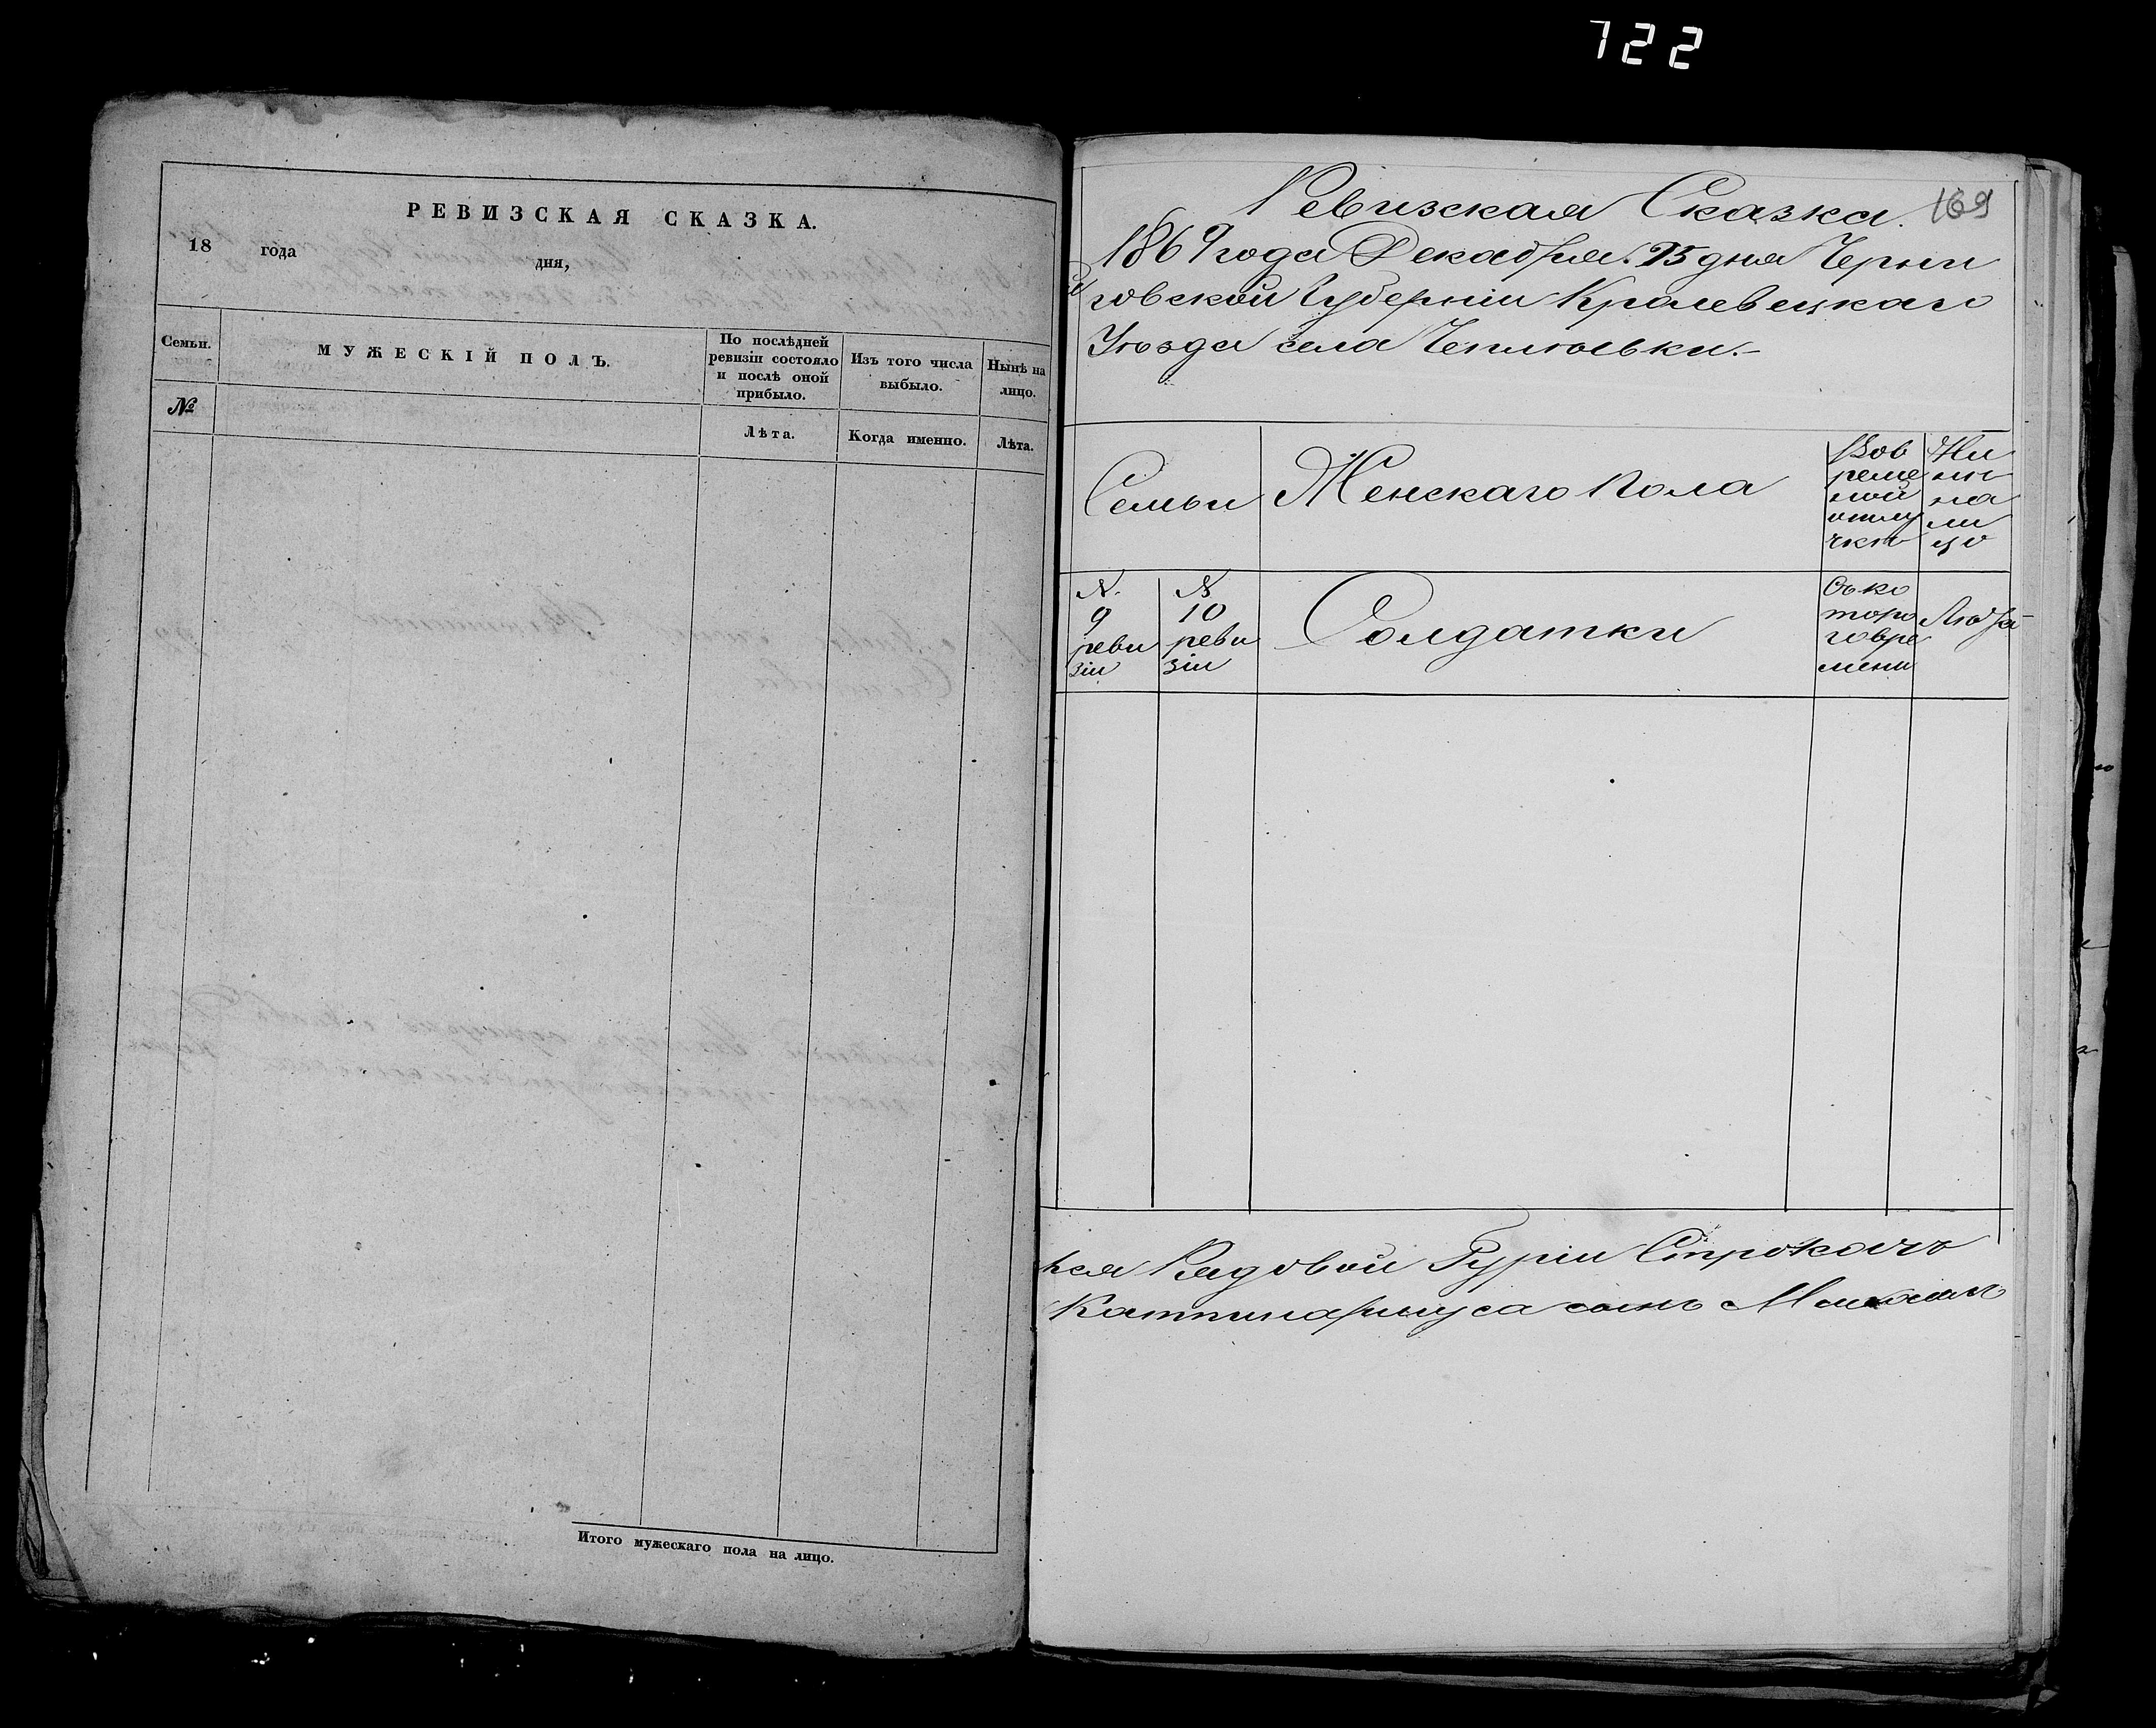 722
РЕВИЗСКАЯ СКАЗКА.
18 года дня,
Семьи.
МУЖЕСКІЙ ПОЛЪ.
По послѣдней
ревизіи состояло
и послѣ оной
прибыло.
Изъ того числа
выбыло.
Нынѣ на
лицо.
№
Лѣта.
Когда именно.
Лѣта.
Итого мужескаго пола на лицо.
169
Ревизская Сказка.
1869 года Декабря 25 дня Черни
говской Губерніи Кролевецкаго
Уѣзда села Чепліовки.
Семьи
Женскаго пола
Вов
реме
ной
отлу
чкѣ
Ни
нѣ
на
ли
цо
N.
9
реви
зіи
N
10
реви
зіи
Солдатки
Съ ко
торо
го вре
мени
Лѣта
Рядовой Гурій Строкачъ
сынъ